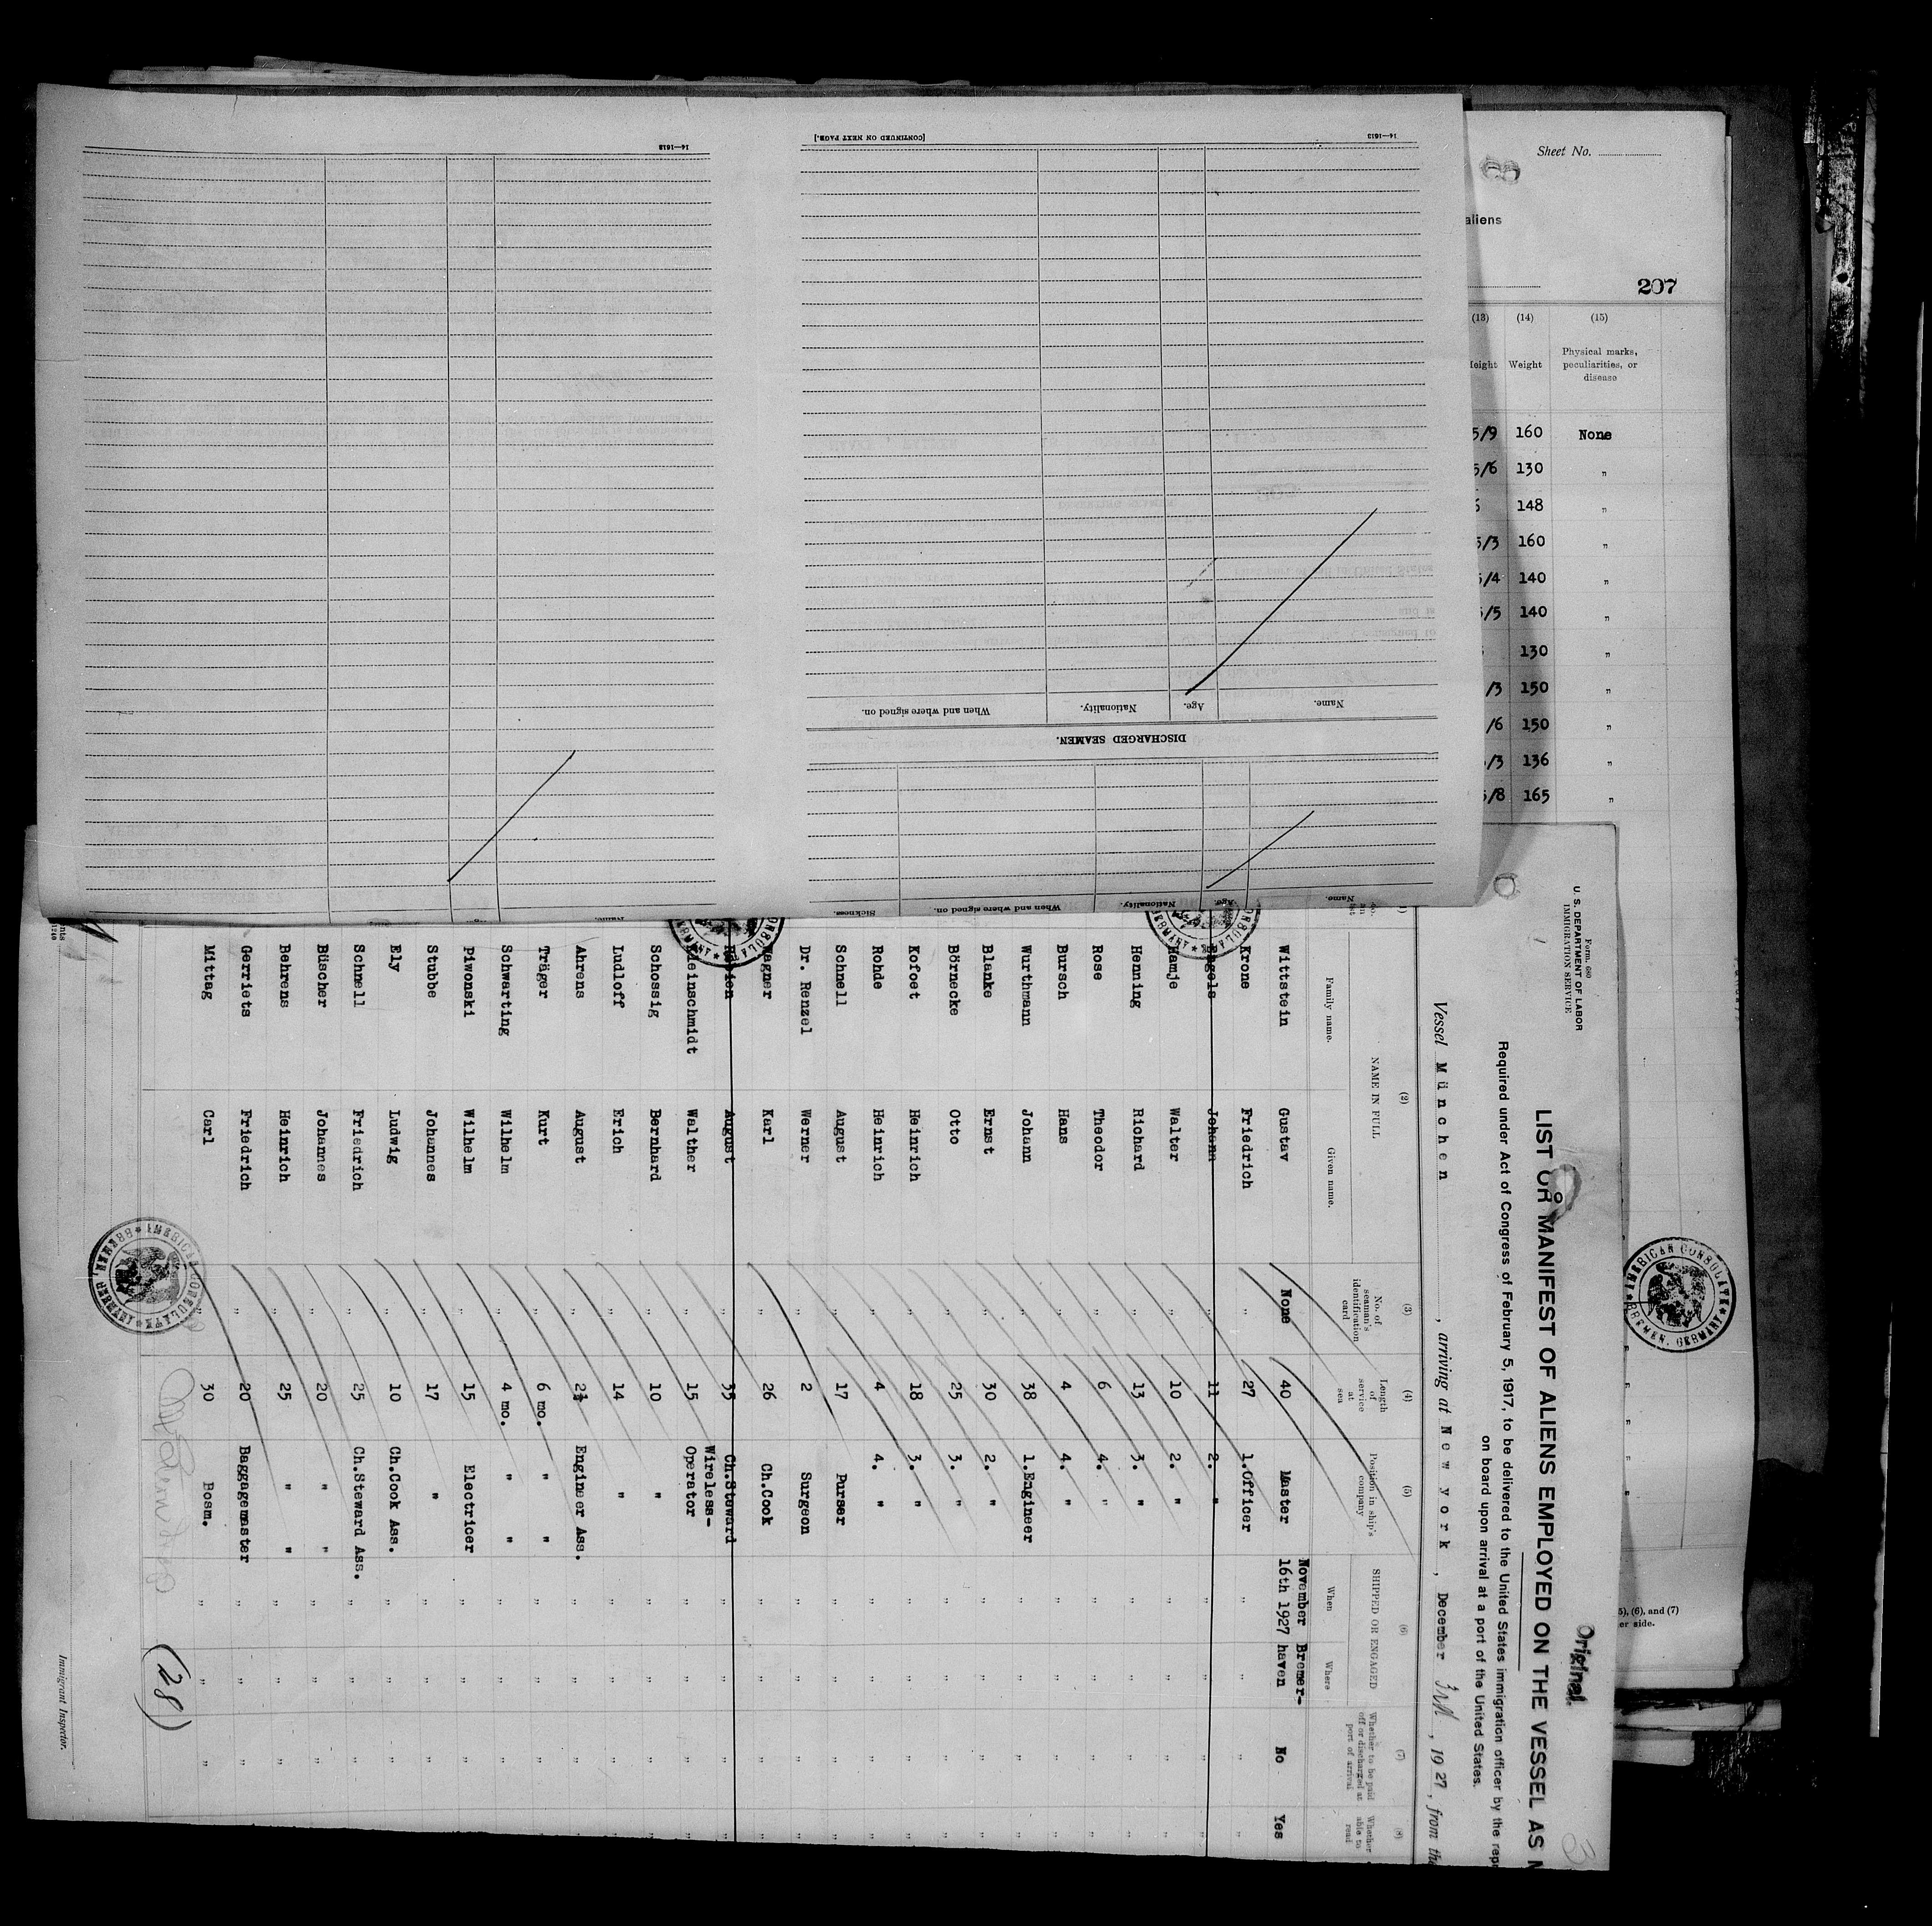 14—1613
[CONTINUED ON NEXT PAGE.]
14—1613
DISCHARGED SEAMEN.
Name.
Age.
Nationality.
When and where signed on.
Name.
Age.
Nationality.
When and where signed on.
Sickness.
Sheet No.
aliens
207
(13) (14) (15)
Height Weight Physical marks, peculiarities, or disease
5/9 160 None
5/6 130 "
148 "
5/3 160 "
5/4 140 "
5/5 140 "
130 "
/3 150 "
/6 150 "
/3 136 "
5/8 165 "
(5), (6), and (7)
er side.
AMERICAN CONSULATE
BREMEN, GERMANY
Original.
Form 680
U. S. DEPARTMENT OF LABOR
IMMIGRATION SERVICE
LIST OR MANIFEST OF ALIENS EMPLOYED ON THE VESSEL AS M
Required under Act of Congress of February 5, 1917, to be delivered to the United States immigration officer by the repr
on board upon arrival at a port of the United States.
Vessel München, arriving at New york, December, 1927, from the
(2) (3) (4) (5) (6) (7) (8)
NAME IN FULL
Family name. Given name.
No. of seaman's identification card
Length of service at sea
Position in ship's company
SHIPPED OR ENGAGED
When Where
Whether to be paid off or discharged at port of arrival
Whether able to read
Wittstein Gustav None 40 Master November 16th 1927 Bremer-haven No Yes
Krone Friedrich " 27 1.Officer " " " "
Engels Johann " 11 2. " " " " "
Hamje Walter " 10 2. " " " " "
Henning Richard " 13 3. " " " " "
Rose Theodor " 6 4. " " " " "
Bursch Hans " 4 4. " " " " "
Wurthmann Johann " 38 1.Engineer " " " "
Blanke Ernst " 30 2. " " " " "
Börnecke Otto " 25 3. " " " " "
Kofoet Heinrich " 18 3. " " " " "
Rohde Heinrich " 4 4. " " " " "
Schnell August " 17 Purser " " " "
Dr. Renzel Werner " 2 Surgeon " " " "
Wagner Karl " 26 Ch.Cook " " " "
August " 35 Ch.Steward " " " "
Kleinschmidt Walther " 15 Wireless-Operator " " " "
Schossig Bernhard " 10 " " " " "
Ludloff Erich " 14 " " " " "
Ahrens August " 2½ Engineer Ass. " " " "
Träger Kurt " 6 mo. " " " " " "
Schwarting Wilhelm " 4 mo. " " " " " "
Piwonski Wilhelm " 15 Electricer " " " "
Stubbe Johannes " 17 " " " " "
Ely Ludwig " 10 Ch.Cook Ass. " " " "
Schnell Friedrich " 25 Ch.Steward Ass. " " " "
Büscher Johannes " 20 " " " " " "
Behrens Heinrich " 25 " " " " " "
Gerriets Friedrich " 20 Baggagemaster " " " "
Mittag Carl " 30 Bosm. " " " "
AMERICAN CONSULATE
BREMEN, GERMANY
(28)
Immigrant Inspector.